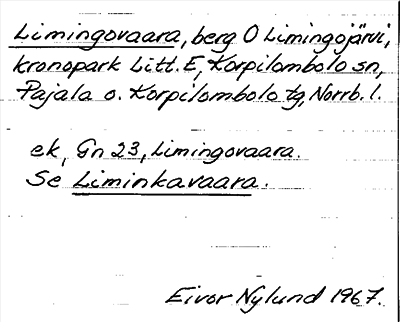 Limingovaara, berg O Limingojärvi,
kronopark Litt. E, Korpilombolo sn,
Pajala o. Korpilombolo tg, Norrb. l.
ek, Gn 23, Limingovaara.
Se Liminkavaara.
Eivor Nylund 1967.